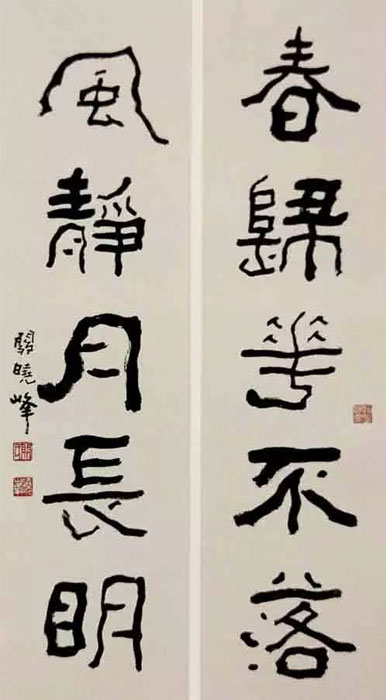 春歸華不落
風靜月長明
曉峰